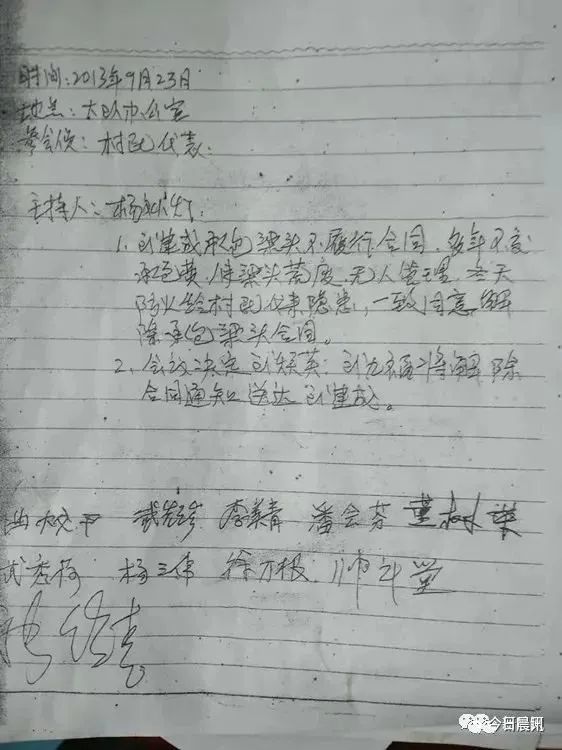 时间:2013年9月23日
地点:大队办公室
参会人:村民代表:
主持人:杨
1、刘建成承包梁头不履行合同,多年不交
承包费,使梁头荒废,无人管理,冬天
防火给村民代来隐患,一致同意解
除承包梁头合同。
2、会议决定 刘 英:刘 福将解除
合同通知送达刘建成。
李美青 潘会芬 董树荣
武秀 杨三伟 徐万根 帅斗堂
今日晨讯